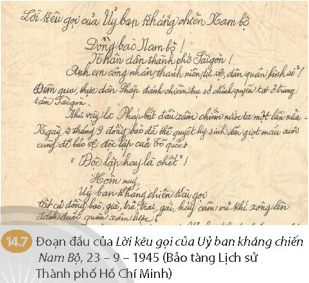 Lời kêu gọi của Uỷ ban kháng chiến Nam bộ
Đồng bào Nam bộ!
Nhân dân thành phố Sài gòn!
Anh em công nhân, thanh niên, tự vệ, dân quân, binh sĩ!
Đêm qua, thực dân Pháp đánh chiếm trụ sở chính quyền ta ở trung
tâm Sài gòn.
Như vậy là Pháp bắt đầu xâm chiếm nước ta một lần nữa.
Ngày 2 tháng 9 đồng bào đã thề quyết hy sinh đến giọt máu cuối
cùng để bảo vệ độc lập của Tổ quốc:
"Độc lập hay là chết"!
Hôm nay
Uỷ ban kháng chiến kêu gọi
tất cả đồng bào, già, trẻ, trai, gái, hãy cầm vũ khí xông lên
đánh đuổi quân xâm lược!
14.7 Đoạn đầu của Lời kêu gọi của Uỷ ban kháng chiến
Nam Bộ, 23 – 9 – 1945 (Bảo tàng Lịch sử
Thành phố Hồ Chí Minh)